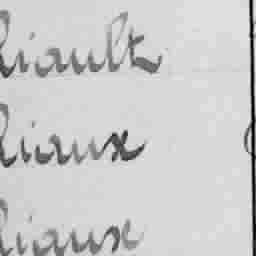 hiault
hiaux
hiaux